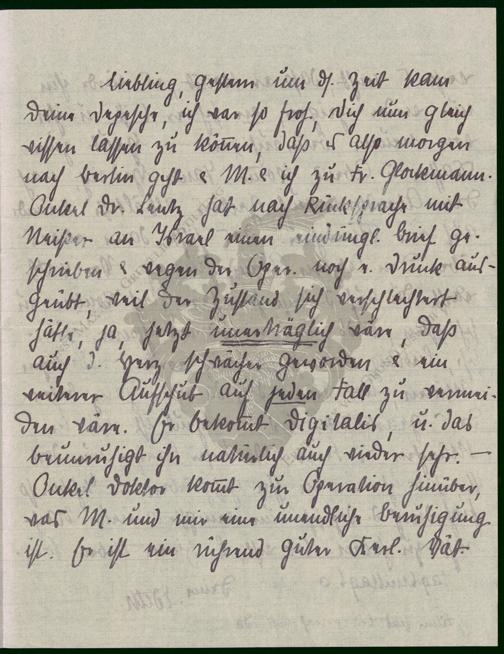 Liebling, gestern um ds. Zeit kam
Deine Depesche, ich war so froh, Dich nun gleich
wissen lassen zu können, daß es also morgen
nach Berlin geht & M. & ich zu Fr. Glockemann.
Onkel Dr. Lentz hat nach Rücksprache mit
Neißer an Israel einen eindringl. Brief ge-
schrieben & wegen der Oper. noch e. Druck aus-
geübt, weil der Zustand sich verschlechtert
hätte, ja, jetzt unerträglich wäre, daß
auch d. Herz schwächer geworden & ein
weiterer Aufschub auf jeden Fall zu vermei-
den wäre. Er bekomt Digitalis, u. das
beunruhigt ihn natürlich auch wieder sehr. —
Onkel Doktor komt zur Operation hinüber,
was M. und mir eine unendliche Beruhigung
ist. Er ist ein rührend guter Kerl. Vät-